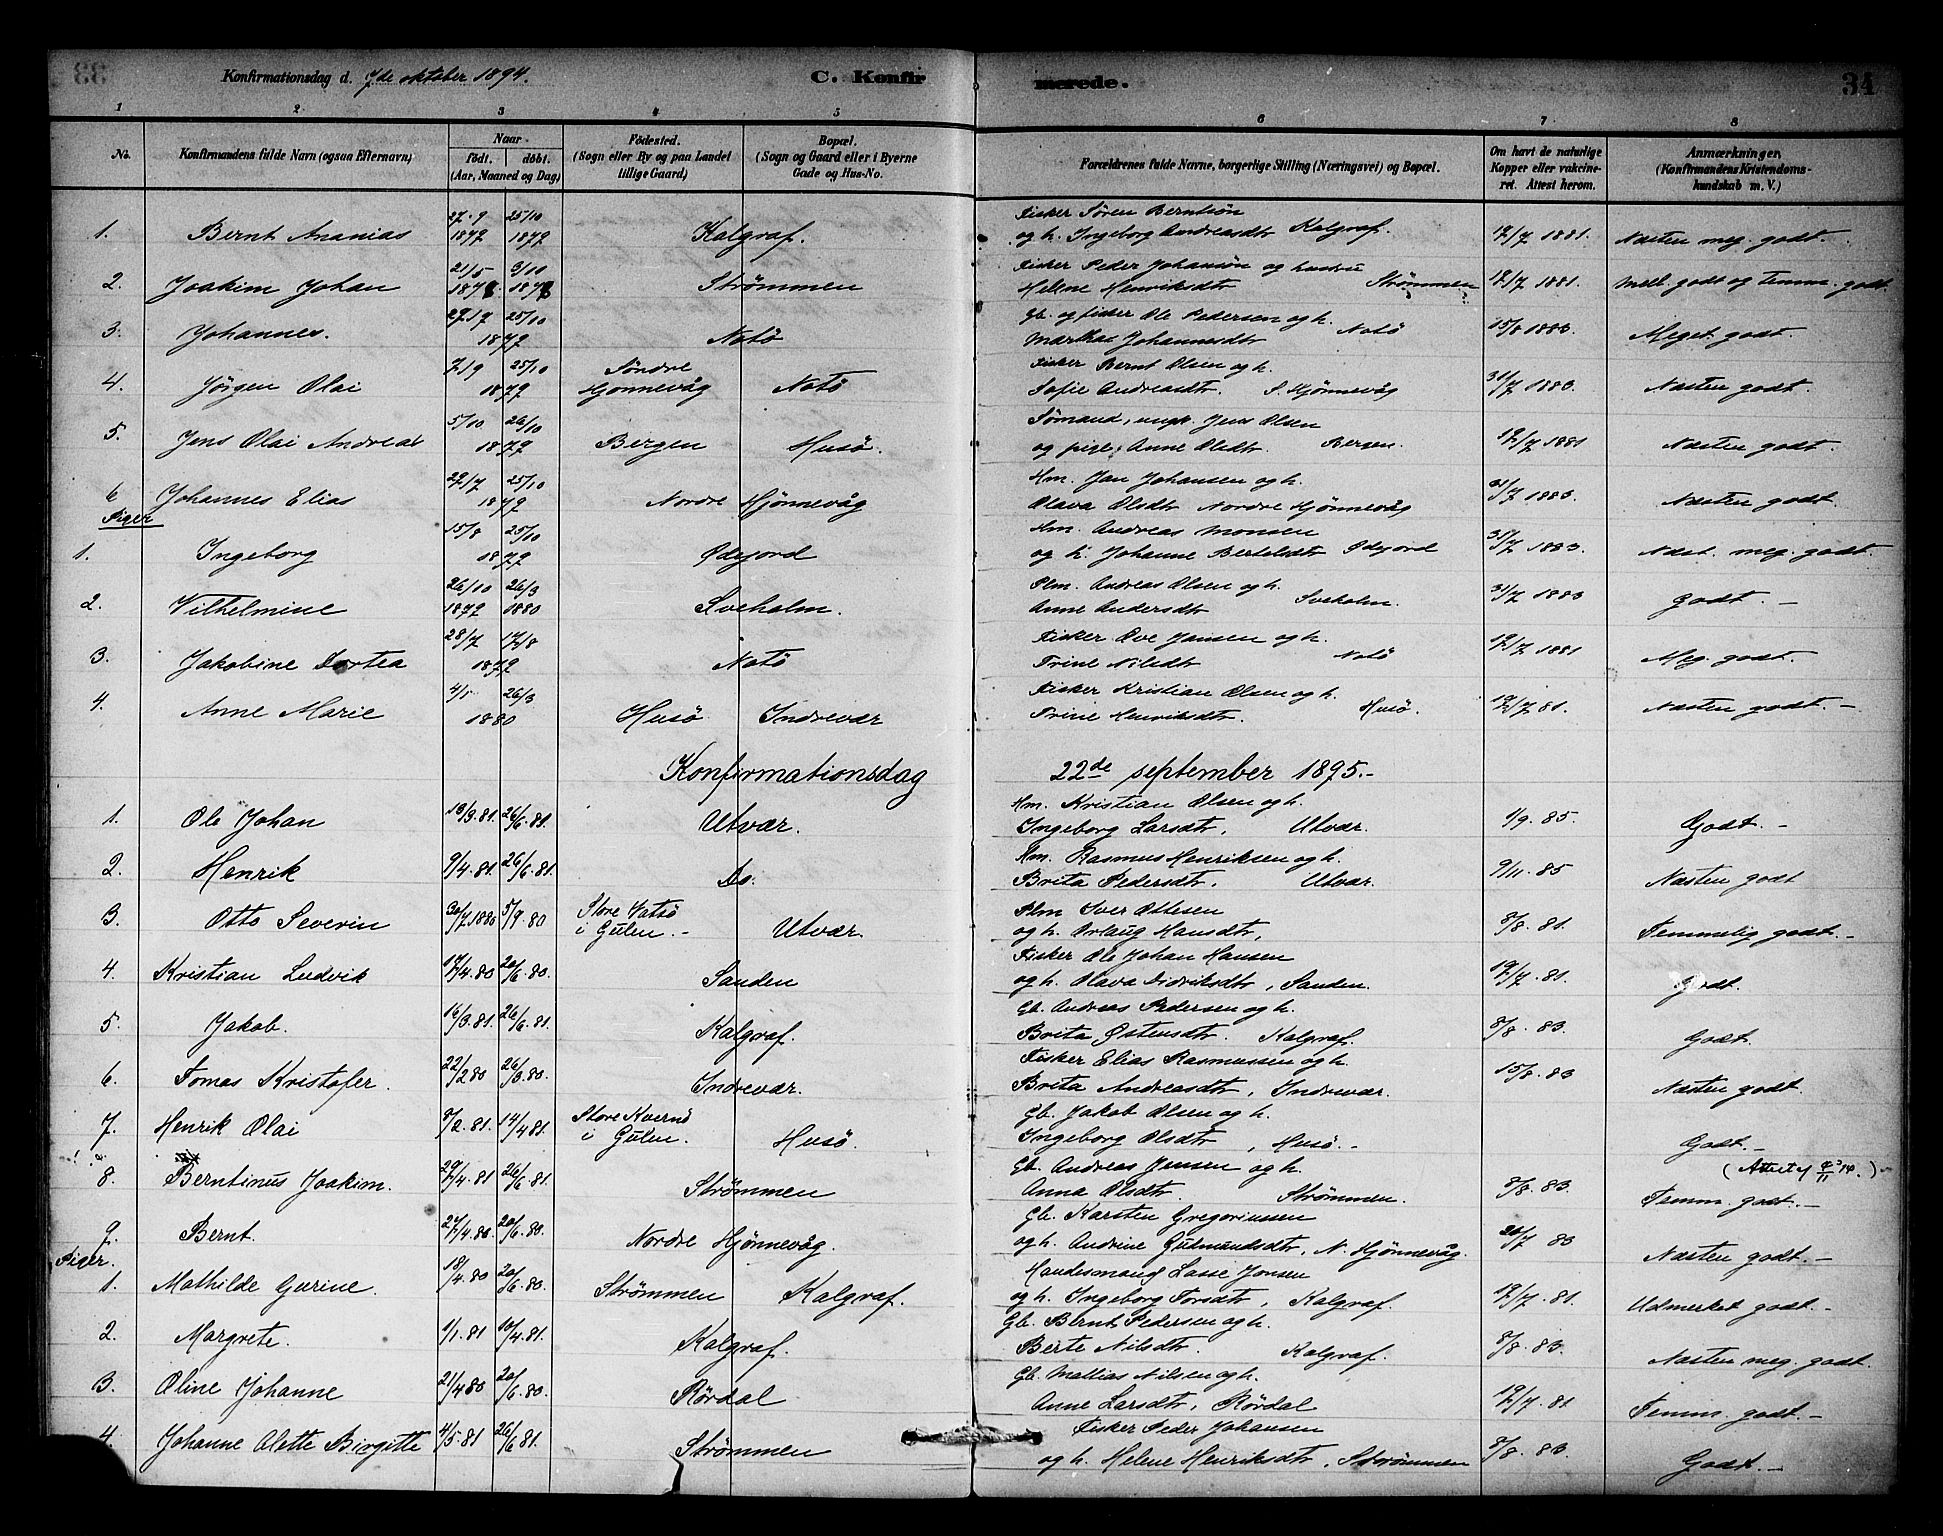 33
Konfirmationsdag d. 7de oktober 1894.
C. Konfirmerede.
34
1 2 3 4 5 6 7 8
No. Konfirmandens fulde Navn (ogsaa Efternavn)
Naar födt. döbt. (Aar, Maaned og Dag)
Födested. (Sogn eller By og paa Landet tillige Gaard)
Bopæl. (Sogn og Gaard eller i Byerne Gade og Hus-No.
Forældrenes fulde Navne, borgerlige Stilling (Næringsvei) og Bopæl.
Om havt de naturlige Kopper eller vakcineret. Attest herom.
Anmærkninger, (Konfirmandens Kristendomskundskab m. V.)
1. Bernt Ananias 27-9 1879 25/10 1879 Kalgraf. Fisker Søren Berntsøn og h. Ingeborg Andreasdtr Kalgraf. 19/7 1881. Næsten meg. godt.
2. Joakim Johan 21/5 3/10 Strømmen Fisker Peder Johansøn og hustru Helene Henriksdtr Strømmen 19/7 1881. Mell. godt og temm. godt.
3. Johannes. 25/10 1879 Notø Gb. og fisker Ole Pedersen og h. Marthe Johannesdtr Notø 15/8 1883. Meget godt.
4. Jørgen Olai 7/9 25/10 1879 Søndre Hjønnevåg Notø Fisker Bernt Olsen og h. Sofie Andreasdtr. S. Hjønnevåg 31/7 1883. Næsten godt.
5. Jens Olai Andreas 5/10 26/10 1879 Bergen Husø. Sømand, ungk. Jens Olsen og pige, Anne Olsdtr. Bergen. 19/7 1881 Næsten godt.
6 Johannes Elias 25/10 1879 Nordre Hjønnevåg Hm. Jan Johansen og h. Olava Olsdtr Nordre Hjønnevåg 31/7 1883. Næsten godt.
Piger
1. Ingeborg 15/8 25/10 1879 Odejord Hm. Andreas Monsen og h. Johanne Berteldtr Odejord 31/7 1883. Næst. meg. godt.
2. Vilhelmine 26/10 1879 26/3 1880 Sveholm. Plm. Andreas Olsen og h. Anne Andersdtr Sveholm. 31/7 1883 Godt. -
3. Jakobine Dortea 28/7 17/8 1879 Notø Fisker Ove Jansen og h. Trine Nilsdtr Notø 19/7 1881 Meg. godt.
4. Anne Marie 4/1 26/3 1880 Husø Indrevær Fisker Kristian Olsen og h. Trine Henriksdtr. Husø. 19/7 81. Næsten godt. -
Konfirmationsdag 22de september 1895.-
1. Ole Johan 13/3.81. 26/6.81. Utvær. Hm. Kristian Olsen og h. Ingeborg Larsdtr, Utvær. 1/9. 85. Godt. -
2. Henrik 9/4.81. 26/6.81. Do. Hm. Rasmus Henriksen og h. Brita Pedersdtr. Utvær. 9/11. 85 Næsten godt
3. Otto Severin 30/7.1880 5/9.80 Store Vatsø i Gulen.- Utvær. Plm Iver Ottesen og h. Orlaug Hansdtr, 8/8. 81. Temmelig godt.-
4. Kristian Ludvik 17/4.80 20/6.80. Sanden Fisker Ole Johan Hansen og h. Olava Didriksdtr, Sanden. 19/7.81. Godt.
5. Jakob. 16/3.81. 26/6.81. Kalgraf. Gb. Andreas Pedersen og h. Brita Østensdtr. Kalgraf. 8/8. 83. Godt.
6. Tomas Kristofer. 22/2 80 26/3.80. Indrevær. Fisker Elias Rasmussen og h. Brita Andreasdtr, Indrevær. 15/8.83 Næsten godt.
7. Henrik Olai 8/2.81. 14/4 81. Store Kvernø i Gulen. Husø. Gb. Jakob Olsen og h. Ingeborg Olsdtr, Husø.- Godt.-
8. Berntinus Joakim. 29/4.81 26/6.81. Strømmen Gb. Andreas Jensen og h. Anna Olsdtr. Strømmen. 8/8. 83. Temm. godt.-
9. Bernt. 27/4.80. 20/6.80. Nordre Hjønnevåg. Gb. Karsten Gregoriussen og h. Andrine Gudmundsdtr, N. Hjønnevåg. 83 Næsten godt.-
Piger.
1. Mathilde Gurine. 18/4.80 20/6.80. Strømmen Kalgraf. Handesmand Lasse Jonsen og h. Ingeborg Torsdtr, Kalgraf. 19/7.81. Udmerket godt.-
2. Margrete. 1/1.81 10/4.81. Kalgraf. Gb. Bernt Pedersen og h. Berte Nilsdtr. Kalgraf. 8/8. 83. Næsten meg. godt.
3. Oline Johanne 21/4 80 20/6.80. Rørdal Gb. Mattias Nilsen og h. Anne Larsdtr, Rørdal 19/7.81 Temm. godt.-
4. Johanne Olette Birgitte 4/5.81 26/6 81. Strømmen Fisker Peder Johansen og h. Helene Henriksdtr, Strømmen 8/8. 83. Godt.-